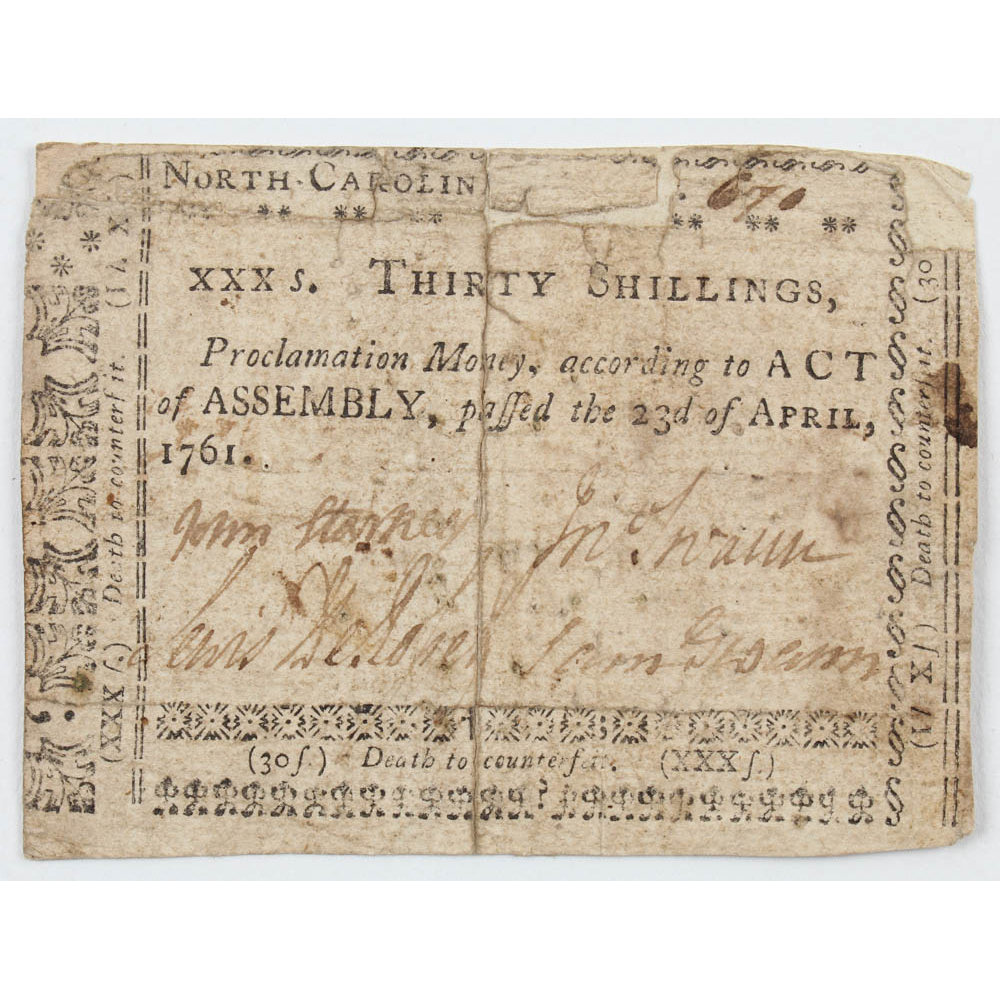 NORTH-CAROLIN
670
XXX s. THIRTY SHILLINGS,
Proclamation Money, according to ACT
of ASSEMBLY, paſſed the 23d of APRIL,
1761.
John Starkey Jno Swann
Lewis DeRosset Sam Swann
(30ſ.) Death to counterfeit. (XXXſ.)
(XXXſ.) Death to counterfeit. (I I X
(I I Xſ) Death to counterfeit. (30